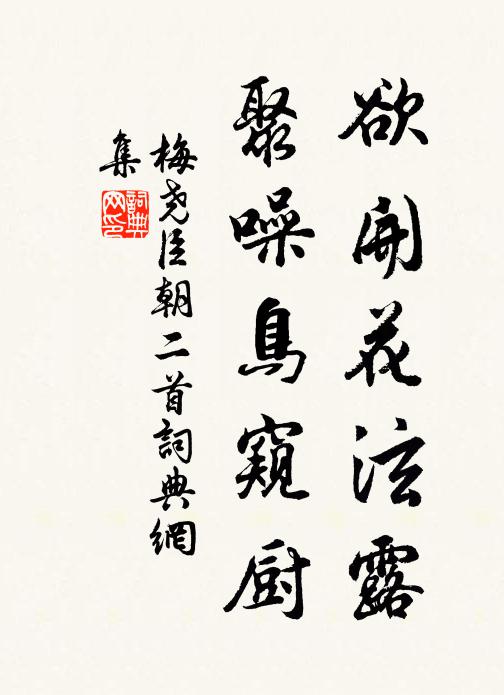 欲開花泫露
聚噪鳥窺厨
梅堯臣朝二首詞典網
集
詞典网印